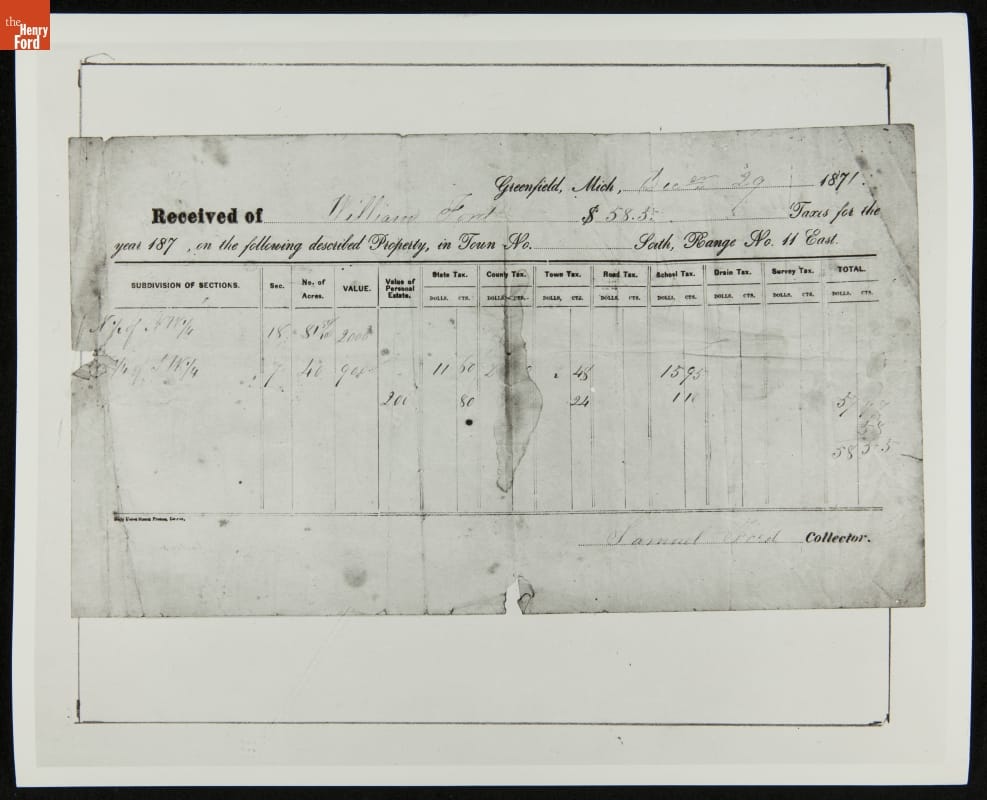 the
Henry
Ford
Greenfield, Mich, Decem 29 1871.
Received of William Ford $ 58.55 Taxes for the
year 187 , on the following described Property, in Town No. South, Range No. 11 East.
SUBDIVISION OF SECTIONS. Sec. No. of Acres. VALUE. Value of Personal Estate. State Tax. County Tax. Town Tax. Road Tax. School Tax. Drain Tax. Survey Tax. TOTAL.
DOLLS. CTS. DOLLS. CTS. DOLLS. CTS. DOLLS. CTS. DOLLS. CTS. DOLLS. CTS. DOLLS. CTS. DOLLS. CTS.
N ½ of N W ¼ 18 2000
¼ of 7 40 900 11 60 2 48 15 95
200 80 24 1 10 57
58
58 55
Samuel Ford Collector.